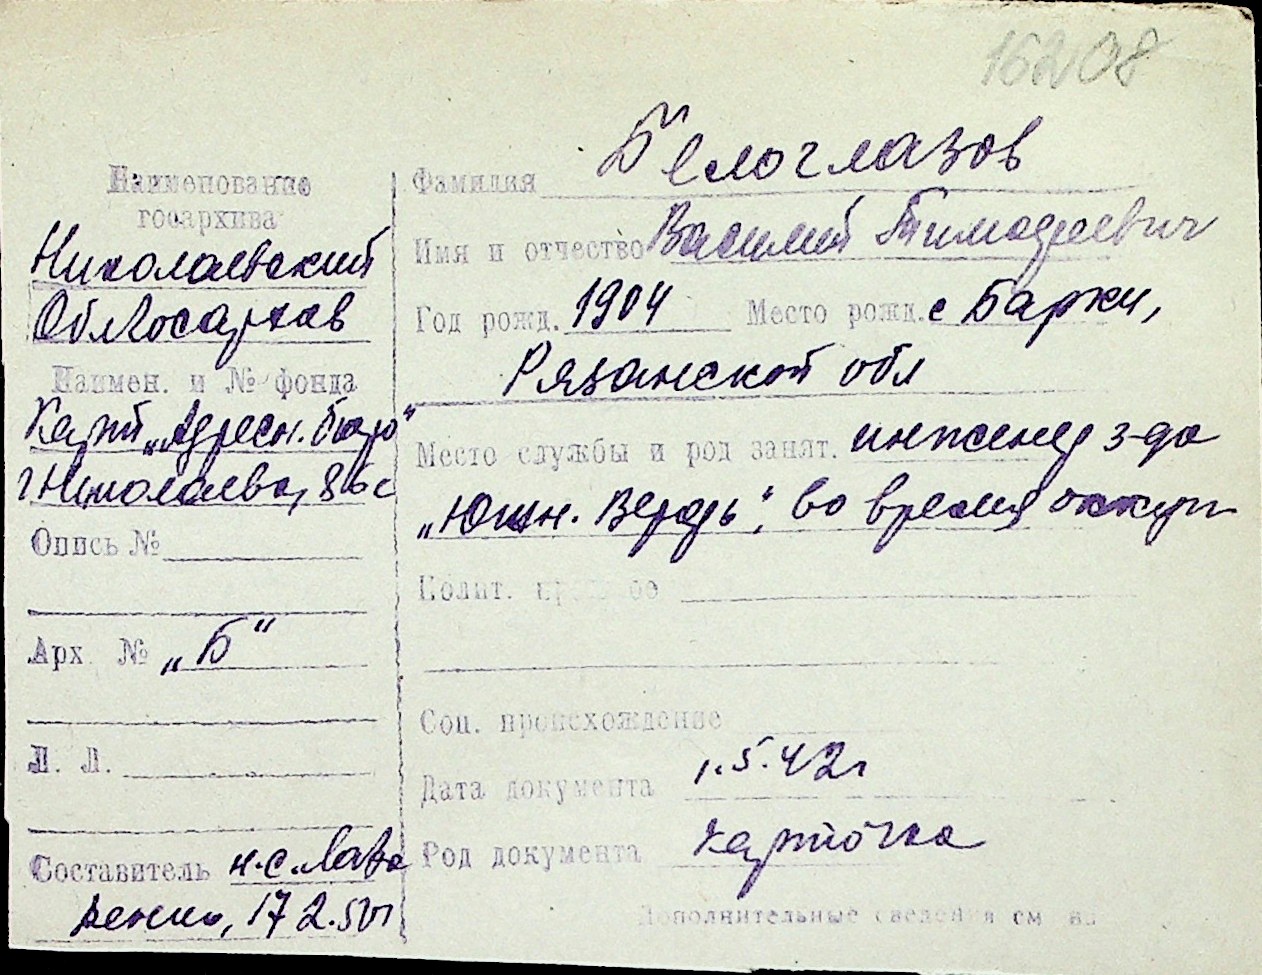 16208
Наименование
госархива
Николаевский
Облгосархив
Наимен. и № фонда
Карт. „Адресн. бюро"
г. Николаева, 86 с
Опись №
Арх. № „Б"
Л. Л.
Составитель н.с. Лавр
17 2.50 г
Фамилия Белоглазов
Имя и отчество Василий Тимофеевич
Год рожд. 1904 Место рожд. с Барки,
Рязанской обл
Место службы и род занят. инженер з-да
„Южн. Верфь", во время оккуп
Полит.
Соц. происхождение
Дата документа 1.5.42 г
Род документа карточка
Дополнительные сведения см на